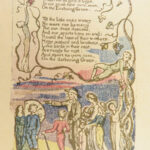 In our youth time were seen,
On the Ecchoing Green.
Till the little ones weary
No more can be merry
The sun does descend,
And our sports have an end:
Round the laps of their mothers,
Many sisters and brothers,
Like birds in their nest,
Are ready for rest;
And sport no more seen,
On the darkening Green.